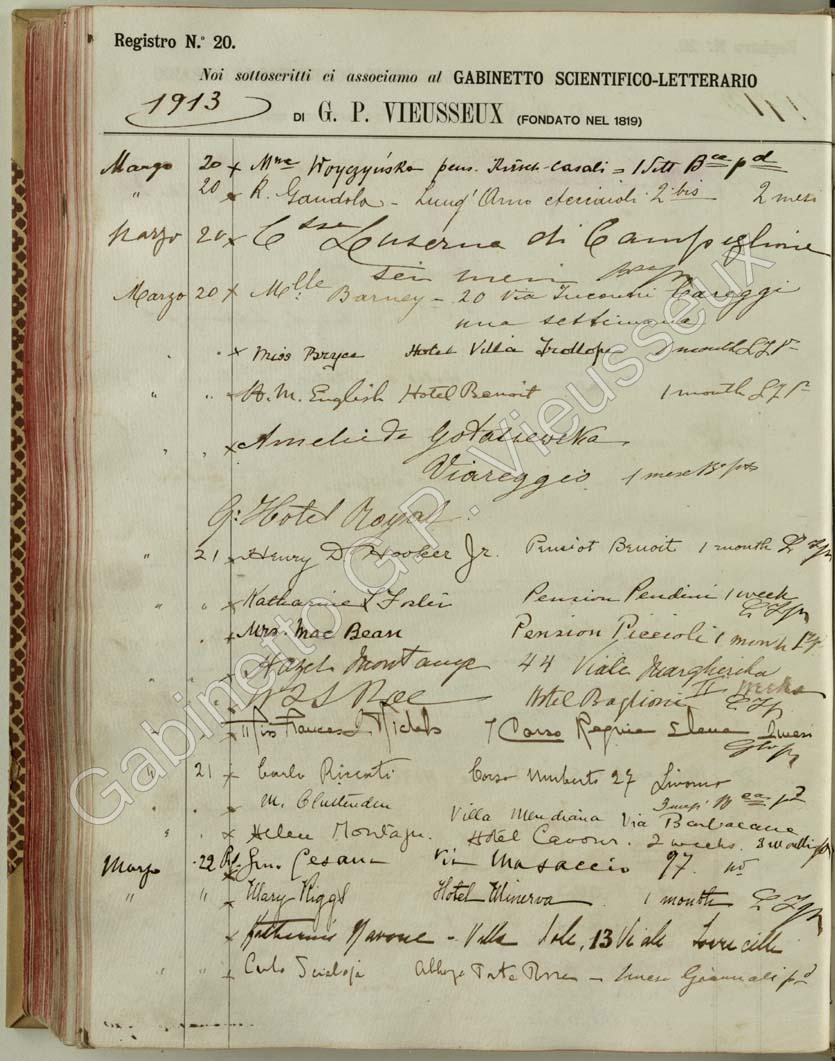 Registro N.º 20.
Noi sottoscritti ci associamo al GABINETTO SCIENTIFICO-LETTERARIO
1913
DI G. P. VIEUSSEUX (FONDATO NEL 1819)
Marzo 20 x Mme Woyczyńska pens. Kirsch-Casali = 1 Sett. Bca pd
" 20 x R. Gandola - Lung' Arno Acciaioli 2 bis 2 mesi
Marzo 20 x Ctssa Luserna di Campiglione
sei mesi
Marzo 20 x Mlle Barney - 20 Via Incontri Careggi
una settimana
" " x Miss Bryce Hotel Villa Trollope 1 month
" " x H. M. English Hotel Benoit 1 month
" " x Amelie de
Viareggio 1 mese
G: Hotel Royal
" 21 x Henry D. Hooker Jr. Pensiot Benoit 1 month
" " x Katharine L Foster Pension Pendini 1 week
" x Mrs. Mac Bean Pension Piccioli 1 month
" " x Hazel Montague 44 Viale Margherita
Roe Hotel Baglioni
" " x Miss Frances J. Nichols 7 Corso Regina Elena 2 mesi
" 21 x Carlo Corso Umberto 27 Livorno
" x M. Villa Via Barbacane
" " x Helen Hotel Cavour. 2 weeks.
Marzo 22 Cesana Via Masaccio 97
" " x Mary Riggs Hotel Minerva 1 month
x - Villa Sole, 13 Viale
" " x Carlo Scialoja Giornali pd
Gabinetto G.P. Vieusseux